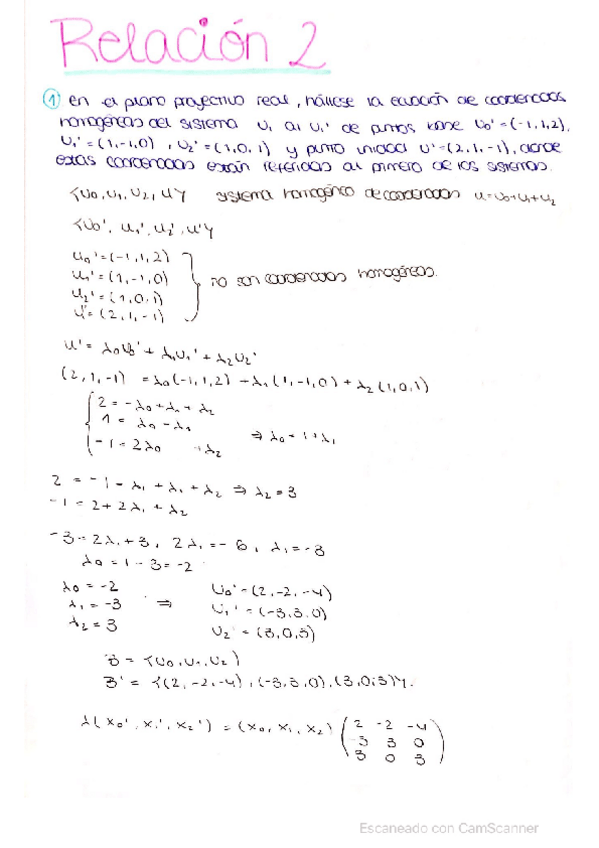 Relación 2
① En el plano proyectivo real, hállese la ecuación de coordenadas
homogéneas del sistema U₁ al U₁' de puntos base U₀'=(-1,1,2),
U₁'=(1,-1,0), U₂'=(1,0,1) y punto unidad U'=(2,1,-1), donde
estas coordenadas están referidas al primero de los sistemas.
{U₀, U₁, U₂, U} sistema homogéneo de coordenadas U=U₀+U₁+U₂
{U₀', U₁', U₂', U'}
U₀'=(-1,1,2)
U₁'=(1,-1,0)
U₂'=(1,0,1)
U'=(2,1,-1)
no son coordenadas homogéneas.
U' = λ₀U₀' + λ₁U₁' + λ₂U₂'
(2,1,-1) = λ₀(-1,1,2) + λ₁(1,-1,0) + λ₂(1,0,1)
2 = -λ₀+λ₁+λ₂
1 = λ₀-λ₁
-1 = 2λ₀ +λ₂ ⇒ λ₀=1+λ₁
2 = -1-λ₁+λ₁+λ₂ ⇒ λ₂=3
-1 = 2+2λ₁+λ₂
-3=2λ₁+3, 2λ₁=-6, λ₁=-3
λ₀=1-3=-2
λ₀=-2
λ₁=-3
λ₂=3
⇒
U₀'=(2,-2,-4)
U₁'=(-3,3,0)
U₂'=(3,0,3)
B = {U₀,U₁,U₂}
B' = {(2,-2,-4),(-3,3,0),(3,0,3)}.
λ(x₀',x₁',x₂') = (x₀,x₁,x₂) (2 -2 -4
-3 3 0
3 0 3)
Escaneado con CamScanner